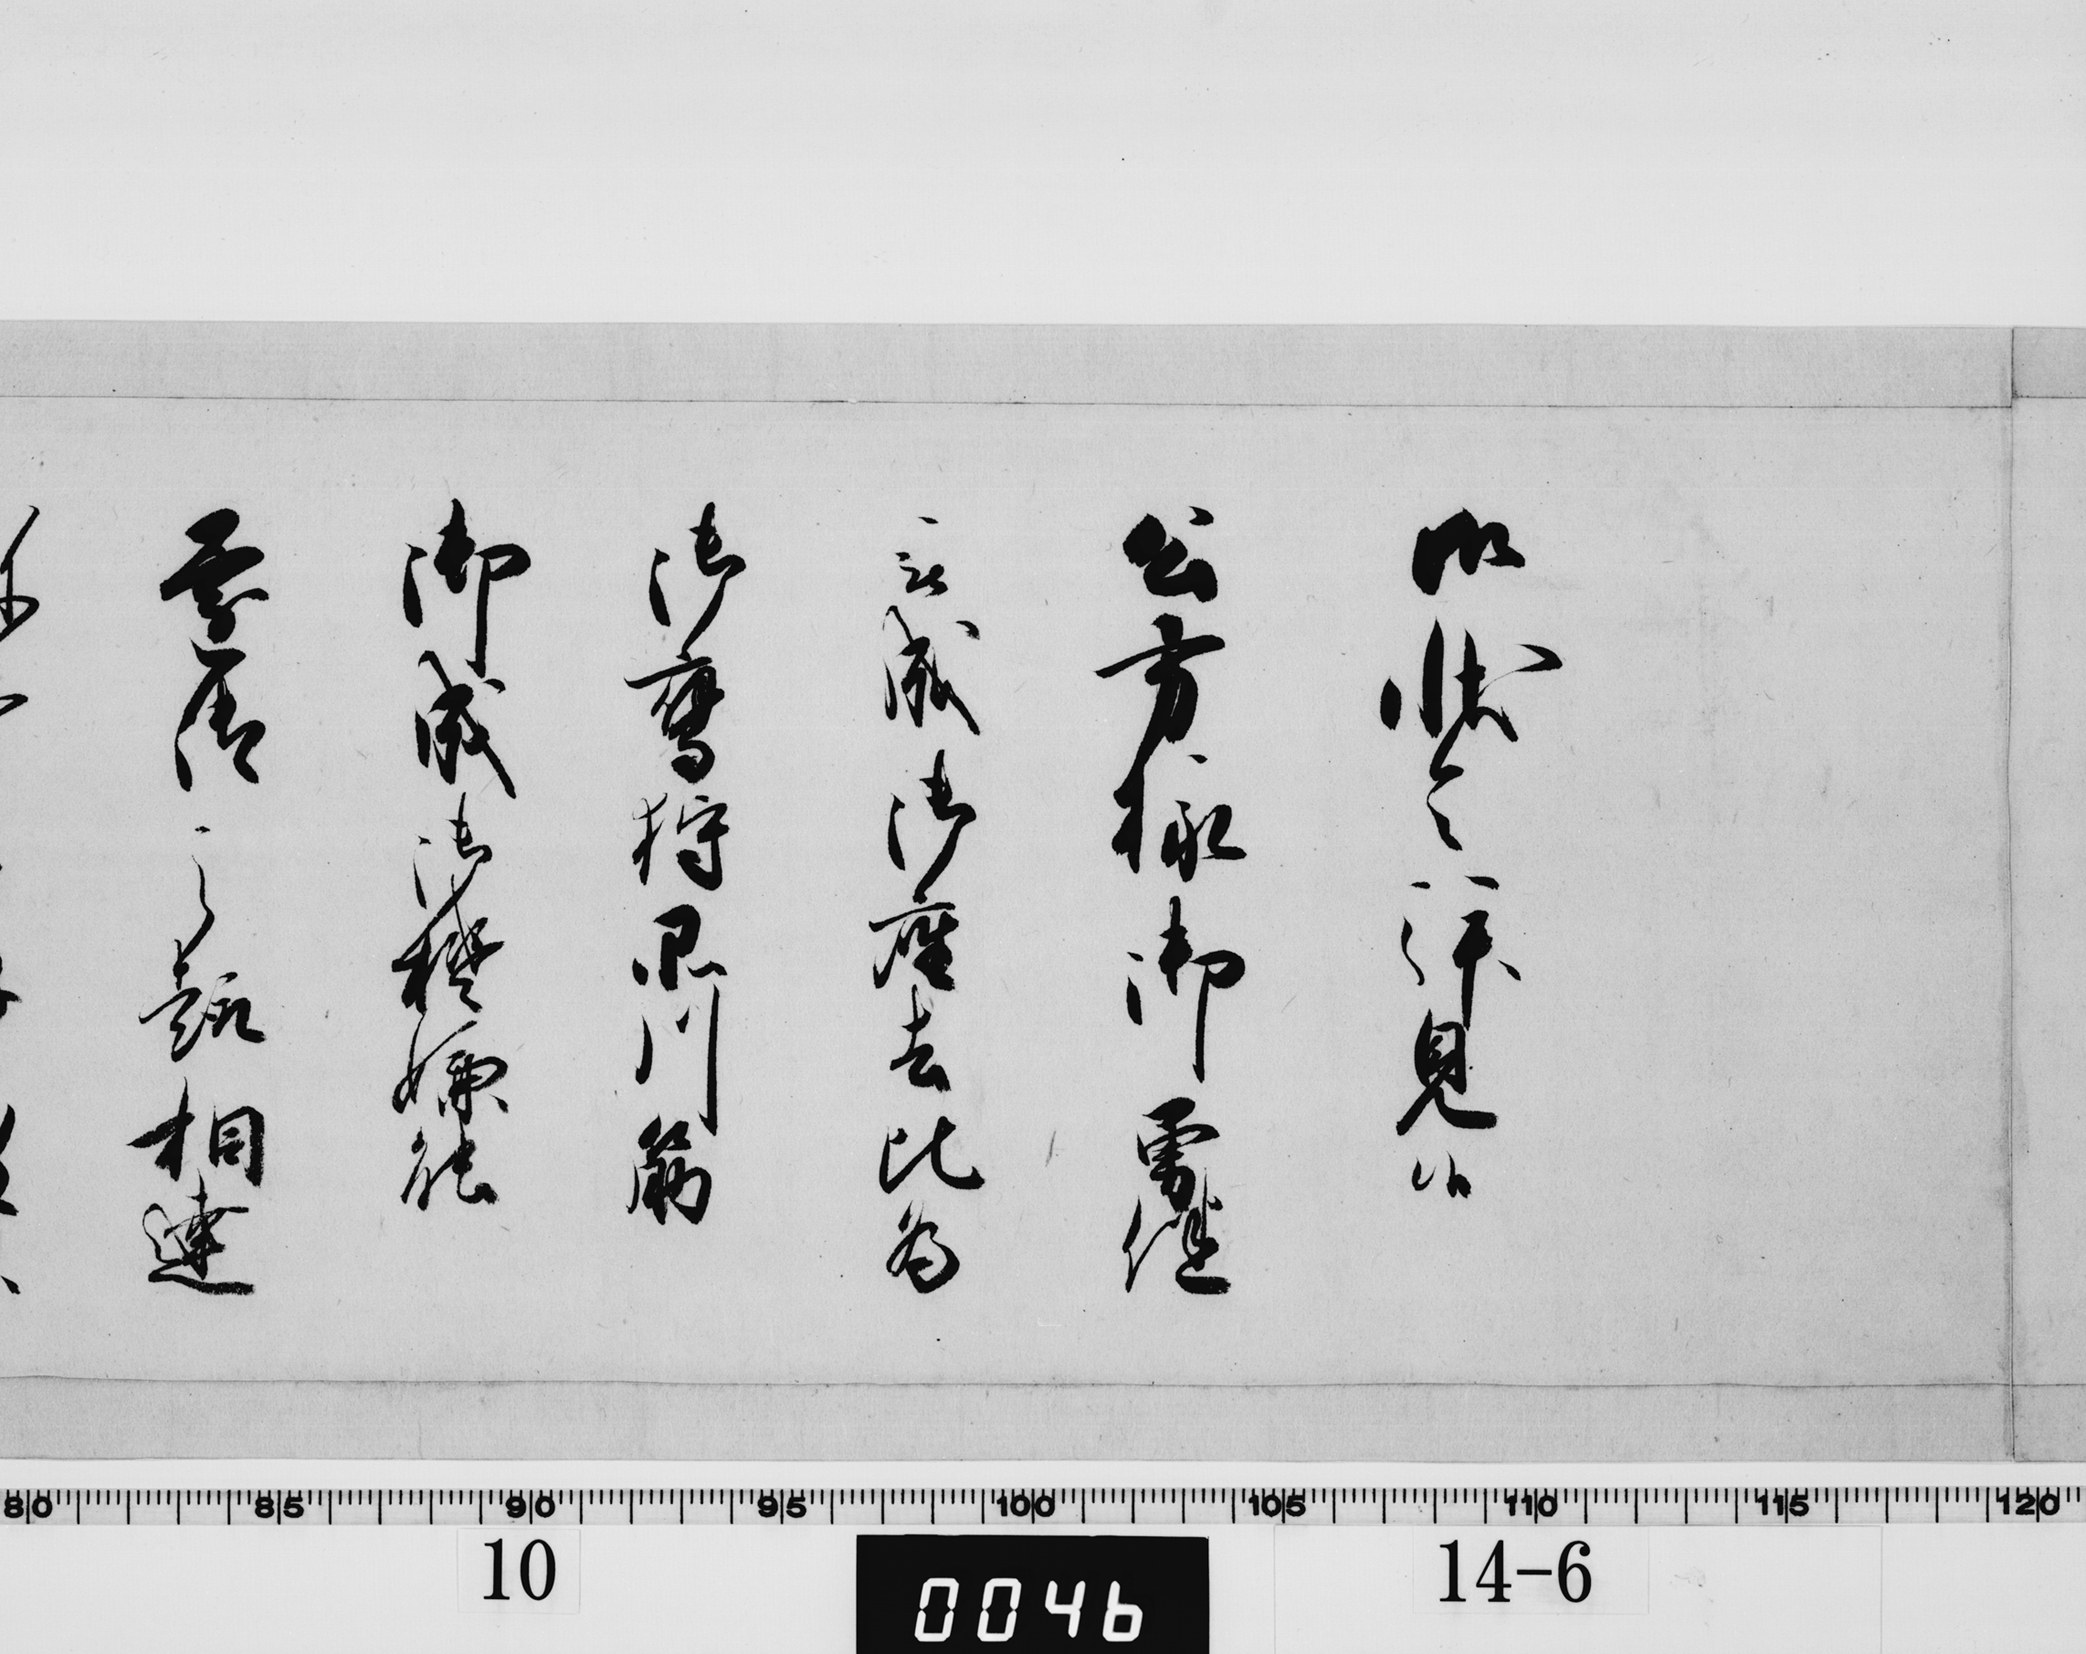 御状令拝見候
公方様御勇健
被成御座去比為
御鷹狩品川筋
御成御機嫌能
還御之趣相達
80 85 90 95 100 105 110 115 120
10
0046
14-6